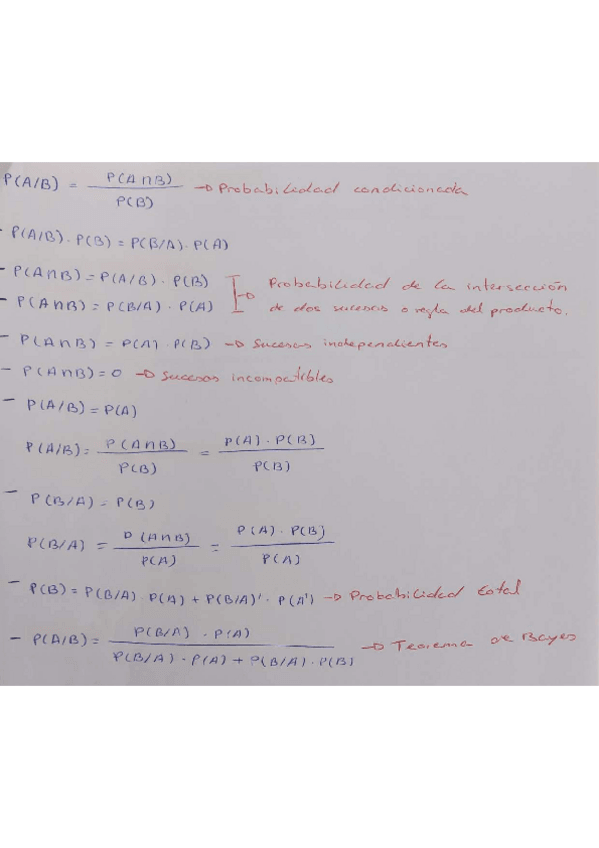 P(A/B) = P(A∩B) / P(B) → Probabilidad condicionada
- P(A/B) · P(B) = P(B/A) · P(A)
- P(A∩B) = P(A/B) · P(B)
- P(A∩B) = P(B/A) · P(A) → Probabilidad de la intersección
de dos sucesos o regla del producto.
- P(A∩B) = P(A) · P(B) → Sucesos independientes
- P(A∩B) = 0 → Sucesos incompatibles
- P(A/B) = P(A)
P(A/B) = P(A∩B) / P(B) = P(A) · P(B) / P(B)
- P(B/A) = P(B)
P(B/A) = P(A∩B) / P(A) = P(A) · P(B) / P(A)
- P(B) = P(B/A) · P(A) + P(B/A)' · P(A') → Probabilidad total
- P(A/B) = P(B/A) · P(A) / P(B/A) · P(A) + P(B/A) · P(B) → Teorema de Bayes